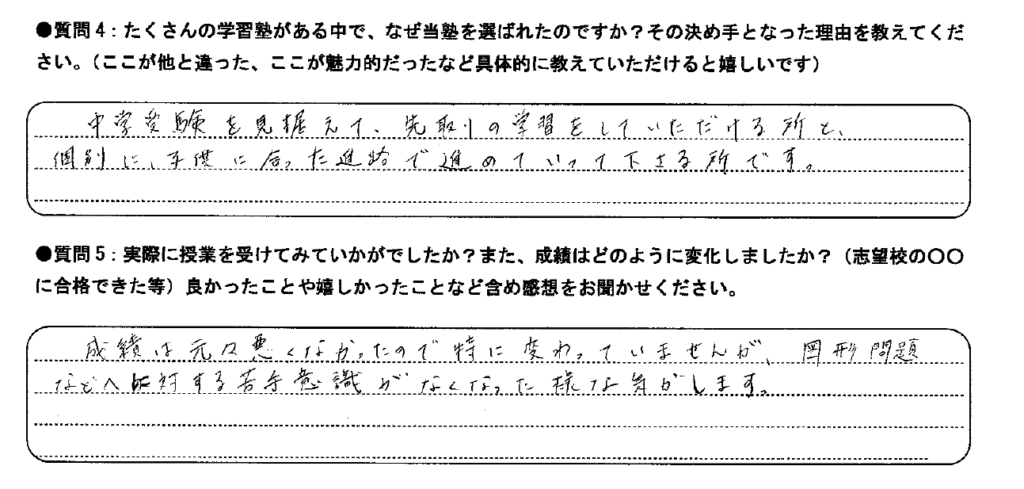 ●質問4：たくさんの学習塾がある中で、なぜ当塾を選ばれたのですか？その決め手となった理由を教えてくだ
さい。（ここが他と違った、ここが魅力的だったなど具体的に教えていただけると嬉しいです）
中学受験を見据えて、先取りの学習をしていただける所と、
個別に、子供に合った進路で進めていって下さる所です。
●質問5：実際に授業を受けてみていかがでしたか？また、成績はどのように変化しましたか？（志望校の〇〇
に合格できた等）良かったことや嬉しかったことなど含め感想をお聞かせください。
成績は元々悪くなかったので特に変わっていませんが、図形問題
などへ対する苦手意識がなくなった様な気がします。